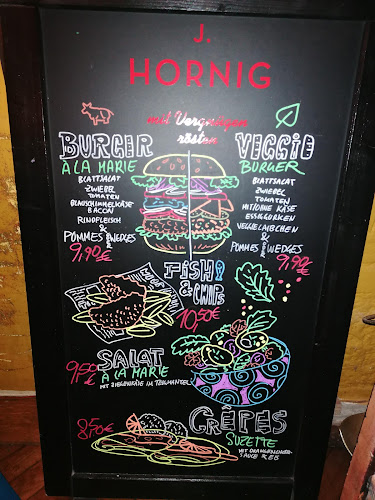 J.
HORNIG
mit Vergnügen
rösten
BURGER
À LA MARIE
BLATTSALAT
ZWIEBEL
TOMATEN
BLAUSCHIMMELKÄSE
BACON
RINDFLEISCH
&
POMMES WEDGES
9,90€
VEGGIE
BURGER
BLATTSALAT
ZWIEBEL
TOMATE
MIT/OHNE KÄSE
ESSIGGURKEN
VEGGIELAIBCHEN
&
POMMES WEDGES
9,90€
FISH
& CHIPS
10,50€
SALAT
À LA MARIE
MIT ZIEGENKÄSE IM TEIGMANTEL
9,50€
CRÊPES
SUZETTE
MIT ORANGENLIKÖR-
SAUCE & EIS